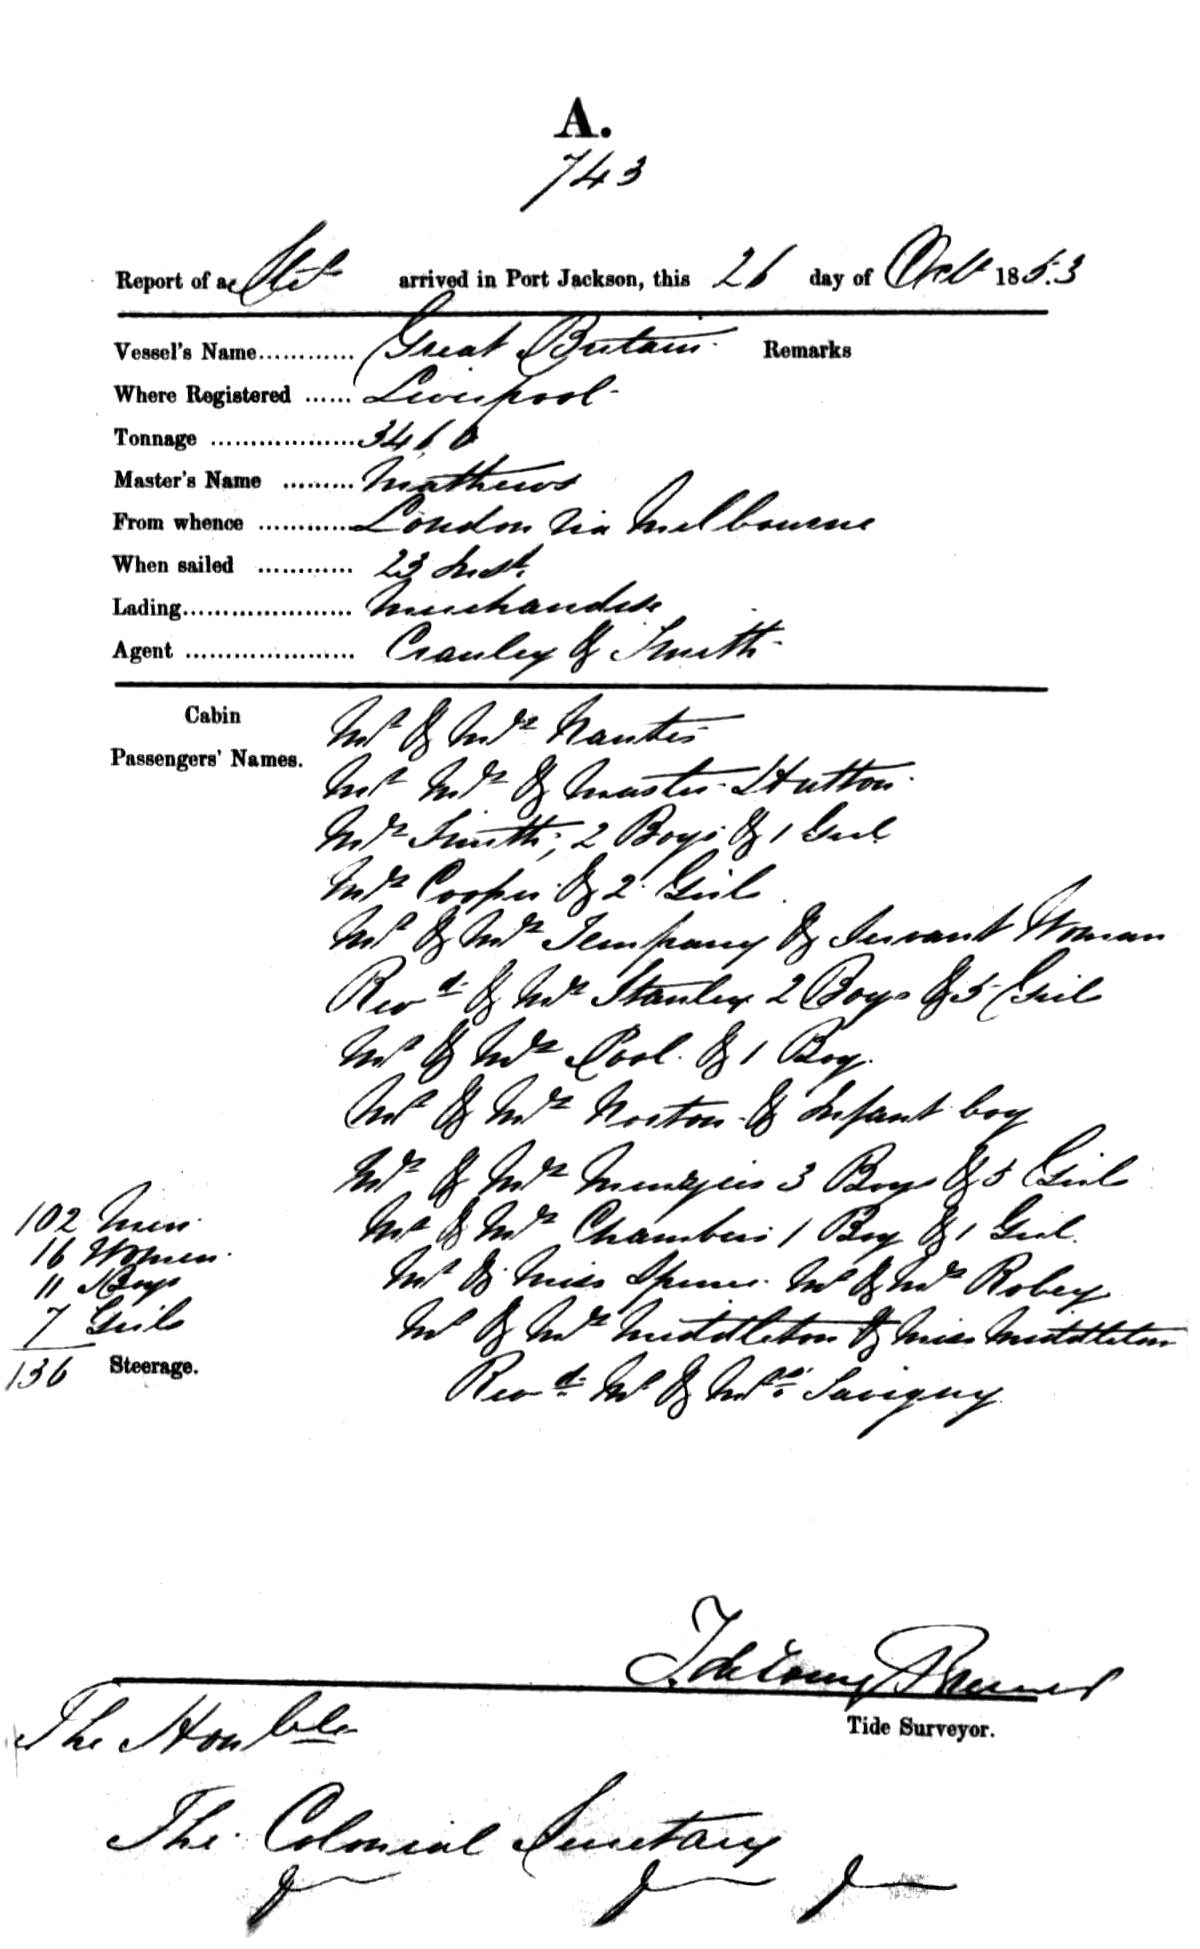 A.
743
Report of a arrived in Port Jackson, this 26 day of Oct 1853
Vessel's Name............ Great Britain Remarks
Where Registered ...... Liverpool
Tonnage .................. 3460
Master's Name ......... Mathews
From whence ............ London via Melbourne
When sailed ............ 23 Inst.
Lading..................... Merchandise
Agent ..................... & Smith
Cabin
Passengers' Names.
Mr & Mrs
Mr Mrs & Master Hutton
Mrs Smith, 2 Boys & 1 Girl
Mrs Cooper & 2 Girls
Mr & Mrs Tempany & Servant Woman
Revd & Mrs Stanley 2 Boys & 5 Girls
Mr & Mrs Pool & 1 Boy.
Mr & Mrs Norton & Infant boy
& Mrs Menzies 3 Boys & 5 Girls
Mr & Mrs Chambers 1 Boy & 1 Girl.
Mr & Miss Mr & Mrs Robey
Mr & Mrs Middleton & Miss Middleton
Revd Mr & Mrs Savigny
102 Men
16 Women
11 Boys
7 Girls
136 Steerage.
Tide Surveyor.
The Honble
The Colonial Secretary